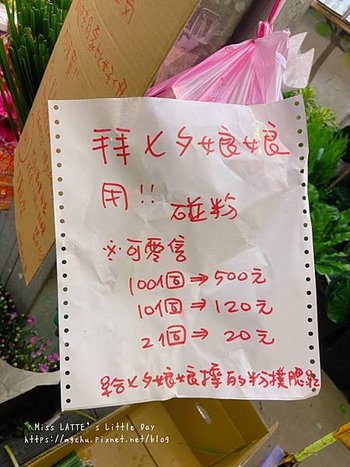 拜七夕娘娘
用!! 碰粉
※可零售
100個⇒500元
10個⇒120元
2個⇒20元
給七夕娘娘擦的粉撲腮紅
"Miss LATTE's Little Day
https://mgchu.pixnet.net/blog